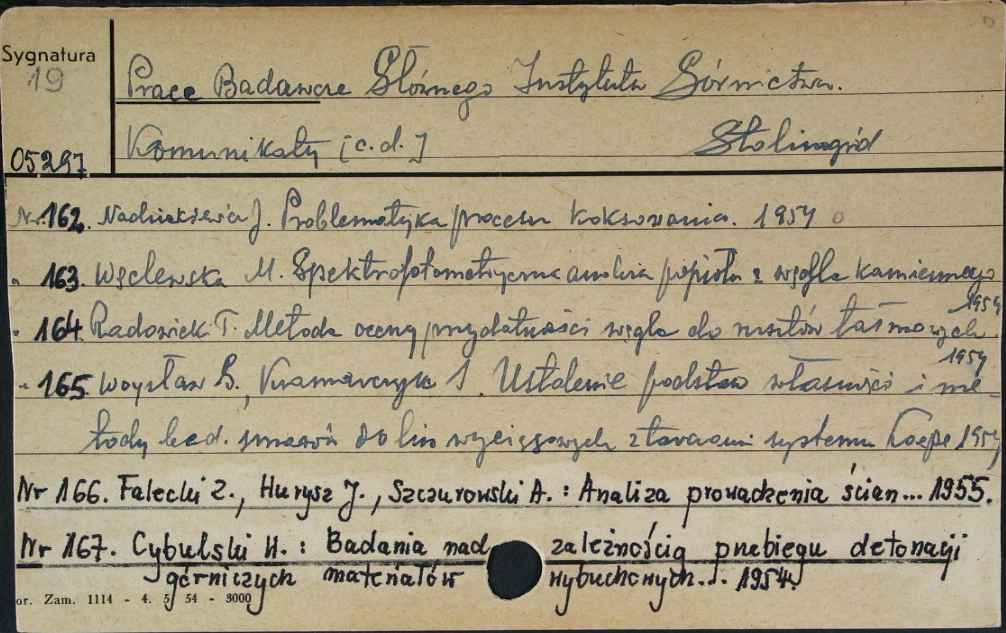 Sygnatura
19
Prace Badawcze Głównego Instytutu Górnictwa.
Komunikaty [c.d.] Stalinogród
05297
Nr. 162. J. Problematyka procesu koksowania. 1954
" 163. Węclewska M. Spektrofotometryczna analiza popiołu z węgla kamiennego
1954
" 164. Radowicki T. Metoda oceny przydatności węgla do rusztów taśmowych
1954
" 165. Woysław B., Kramarczyk J. Ustalenie podstaw własności i me-
tody bad. smarów do lin wyciągowych z tarczami systemu Koepe 1954
Nr 166. Falecki Z., Hurysz J., Szczurowski A. : Analiza prowadzenia ścian... 1955.
Nr 167. Cybulski W. : Badania nad zależnością przebiegu detonacji
górniczych materiałów wybuchowych... 1954.
or. Zam. 1114 - 4. 5 54 - 3000